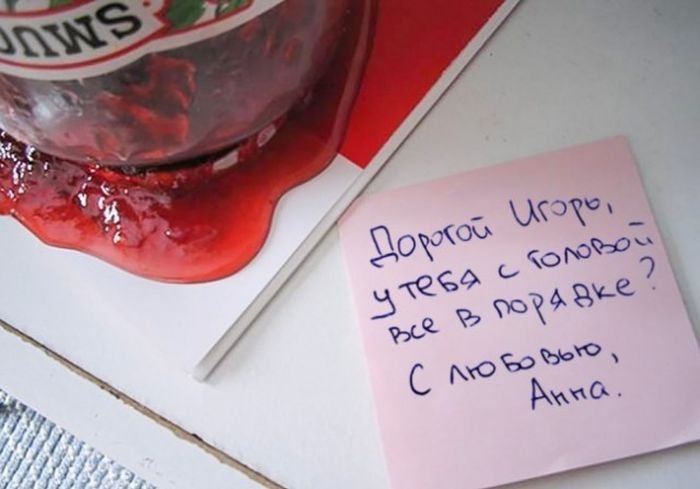 SMUC
Дорогой Игорь,
у тебя с головой
все в порядке?
С любовью,
Анна.